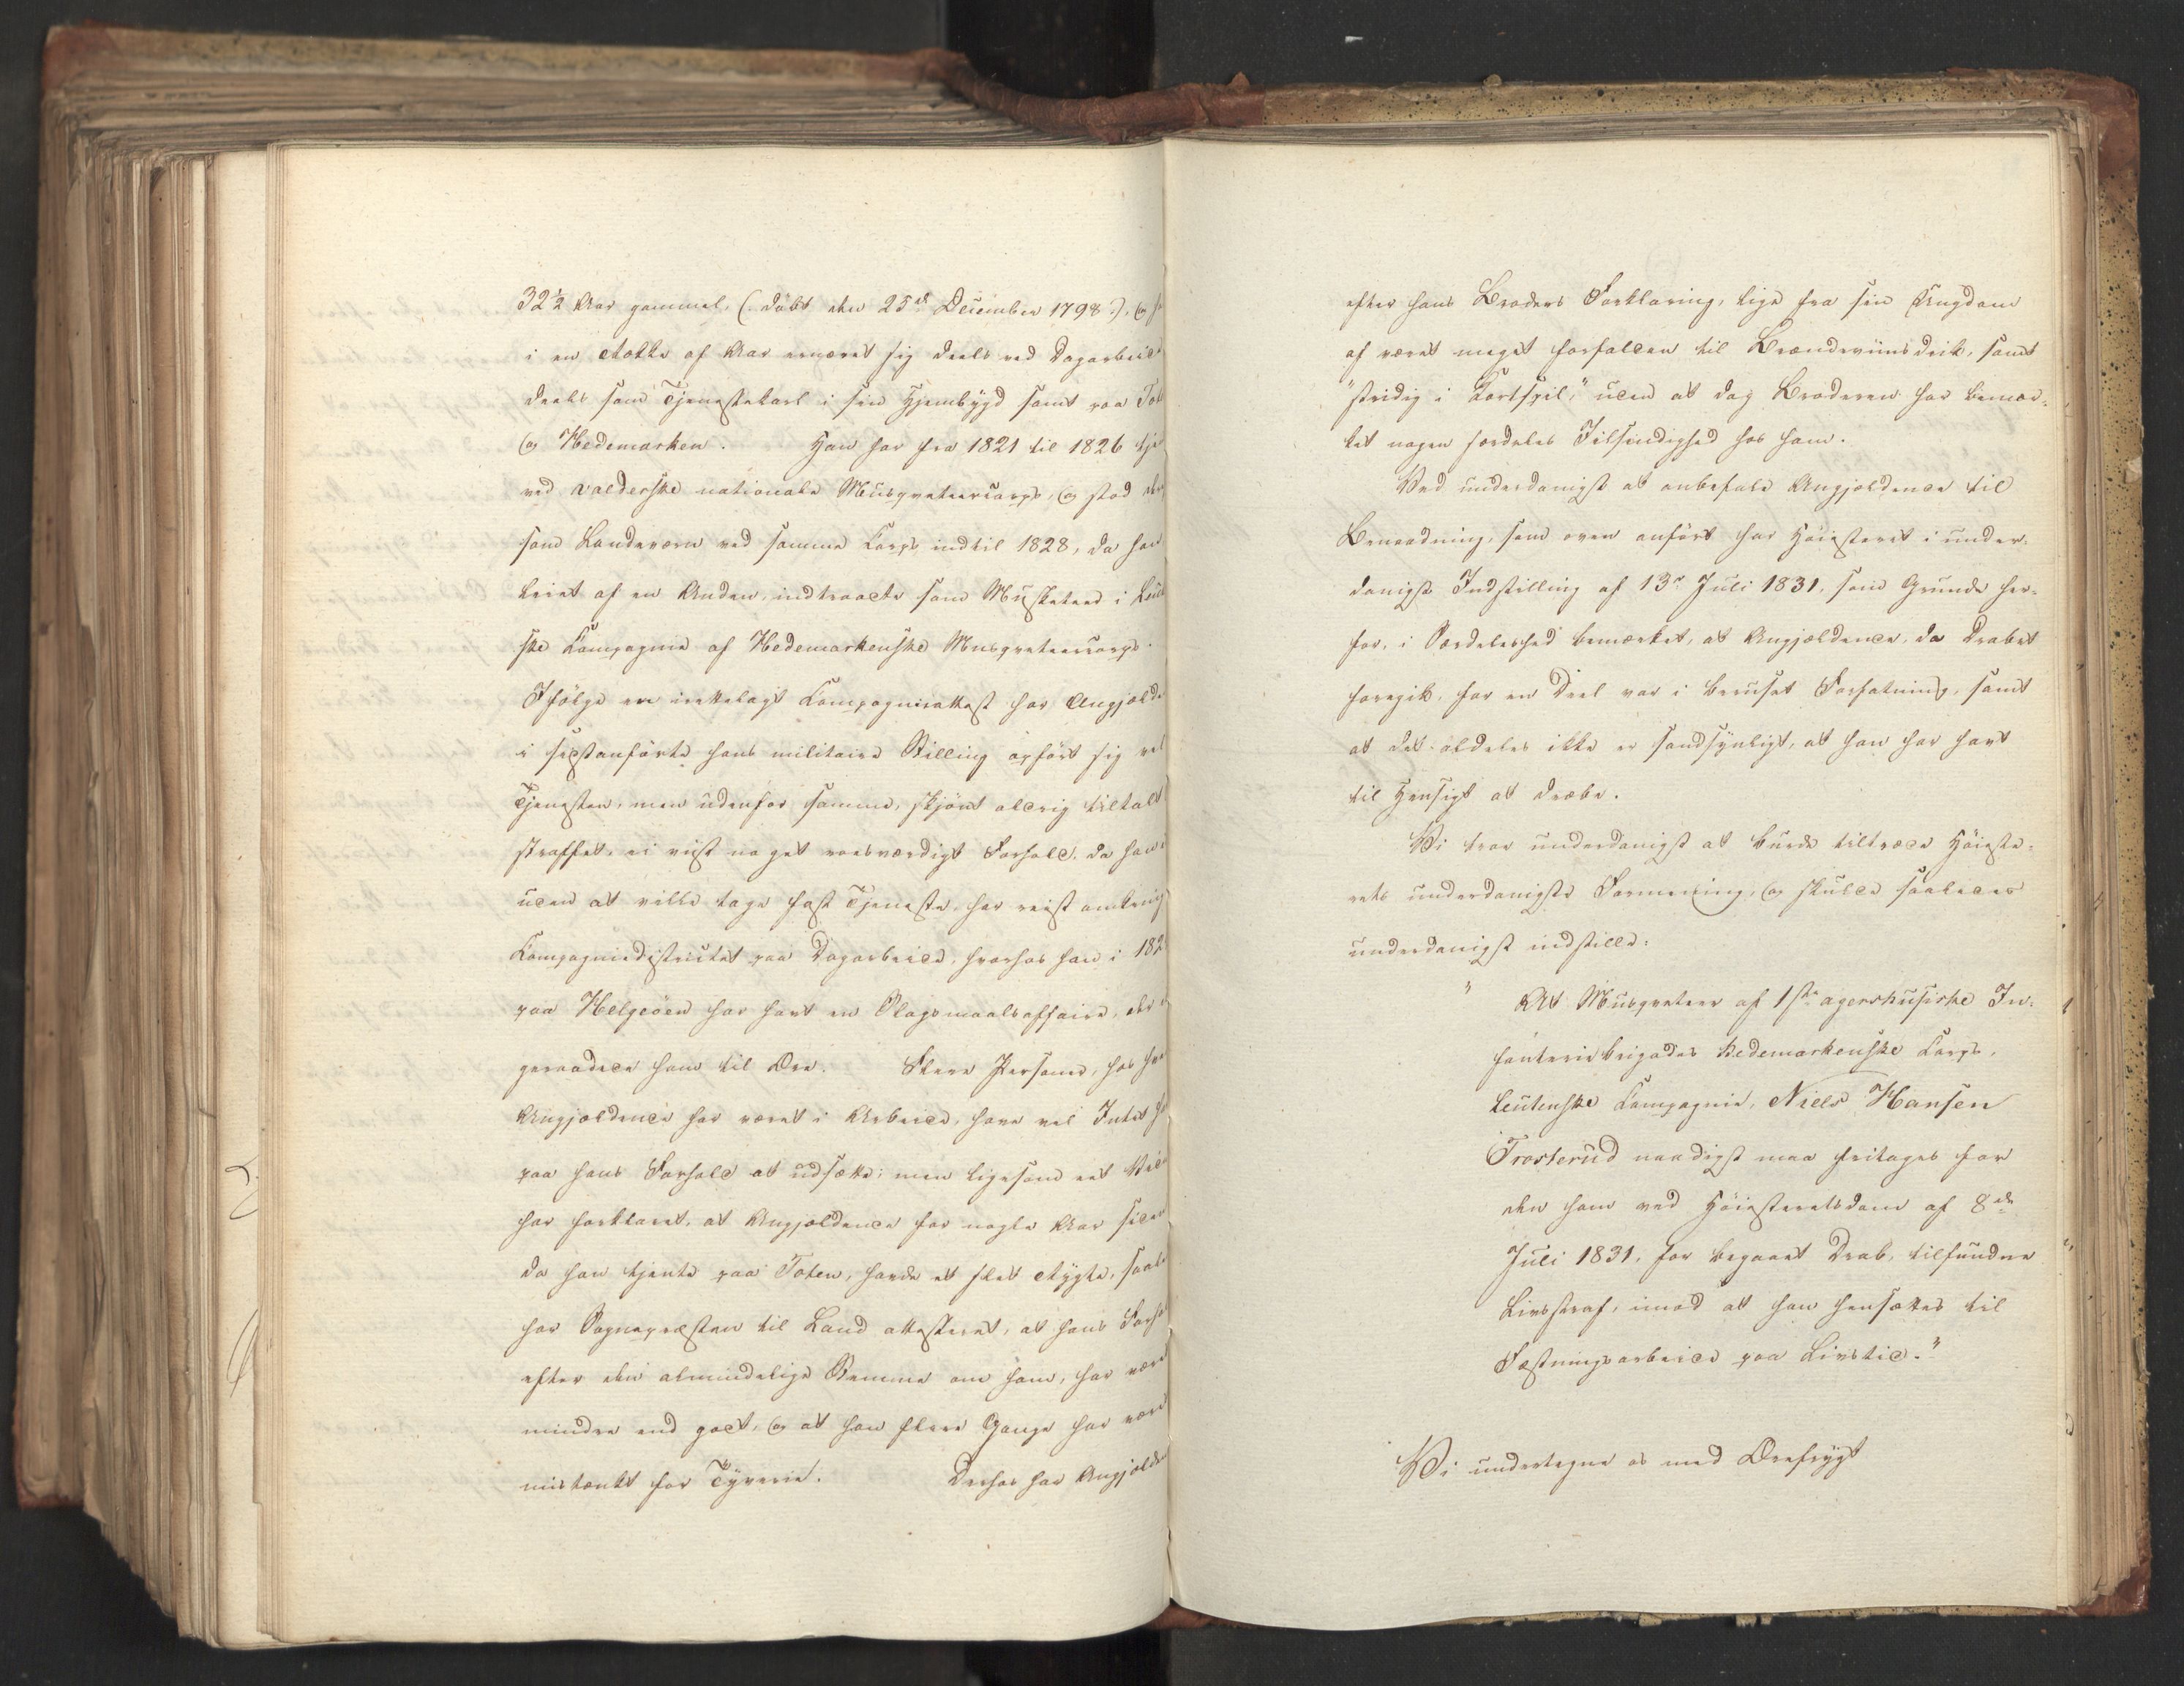 32½ Aar gammel, (: döbt den 25de December 1798 :), og
i en Række af Aar ernæret sig deels ved Dagarbeid
deels som Tjenestekarl i sin Hjembÿgd samt paa Tot
og Hedemarken. Han har fra 1821 til 1826 tje
ved valderske nationale Musqveteercorps, og stod der
som Landeværn ved samme Corps indtil 1828, da han
leiet af en Anden, indtraadte som Musketeer i Leut
ske Compagnie af Hedemarkenske Musqveteercorps.
Ifölge en irettelagt Compagnieattest har Angjælde
i sidstanförte hans militaire Stilling opfört sig vel
Tjenesten, men udenfor samme, skjönt aldrig tiltalt
straffet, ei viist noget roesværdigt Forhold, da han
uden at ville tage fast Tjeneste, har reist omkring
Compagniedistrictet paa Dagarbeide, hvorhos han i 182
paa Helgeöen har havt en Slagsmaalsaffaire, der
geraadede ham til Ære. Flere Personer, hos hv
Angjældende har været i Arbeide, have vel Intet h
paa hans Forhold at udsætte; men ligesom eet Vid
har forklaret, at Angjældende for nogle Aar siden
da han tjente paa Toten, havde et slet Rÿgte, saale
har Sognepræsten til Land attesteret, at hans Forho
efter den almindelige Stemme om ham, har være
mindre end godt, og at han flere Gange har være
mistænkt for Tÿverie. Derhos har Angjælde
efter hans Broders Forklaring, lige fra sin Ungdom
af været meget forfalden til Brændeviinsdrik, samt
"stridig i Kortspil," uden at dog Broderen har bemær-
ket nogen særdeles Ilsindighed hos ham.
Ved underdanigst at anbefale Angjældende til
Benaadning, som oven anfört har Höiesteret i under-
danigst Indstilling af 13de Juli 1831, som Grunde her-
for, i Særdeleshed bemærket, at Angjældende, da Drabet
foregik, for en Deel var i beruset Forfatning, samt
at det aldeles ikke er sandsÿnligt, at han har havt
til Hensigt at dræbe.
Vi troe underdanigst at burde tiltræde Höieste-
rets underdanigste Formening, og skulde saaledes
underdanigst indstille:
" At Musqveteer af 1ste agershusiske In-
fanteriebrigades hedemarkenske Corps,
Leutenske Compagnie, Niels Hansen
Trosterud naadigst maa fritages for
den ham ved Höiesteretsdom af 8de
Juli 1831, for begaaet Drab, tilfundne
Livsstraf, imod at han hensættes til
Fæstningsarbeide paa Livstid."
Vi undertegne os med Ærefrÿgt